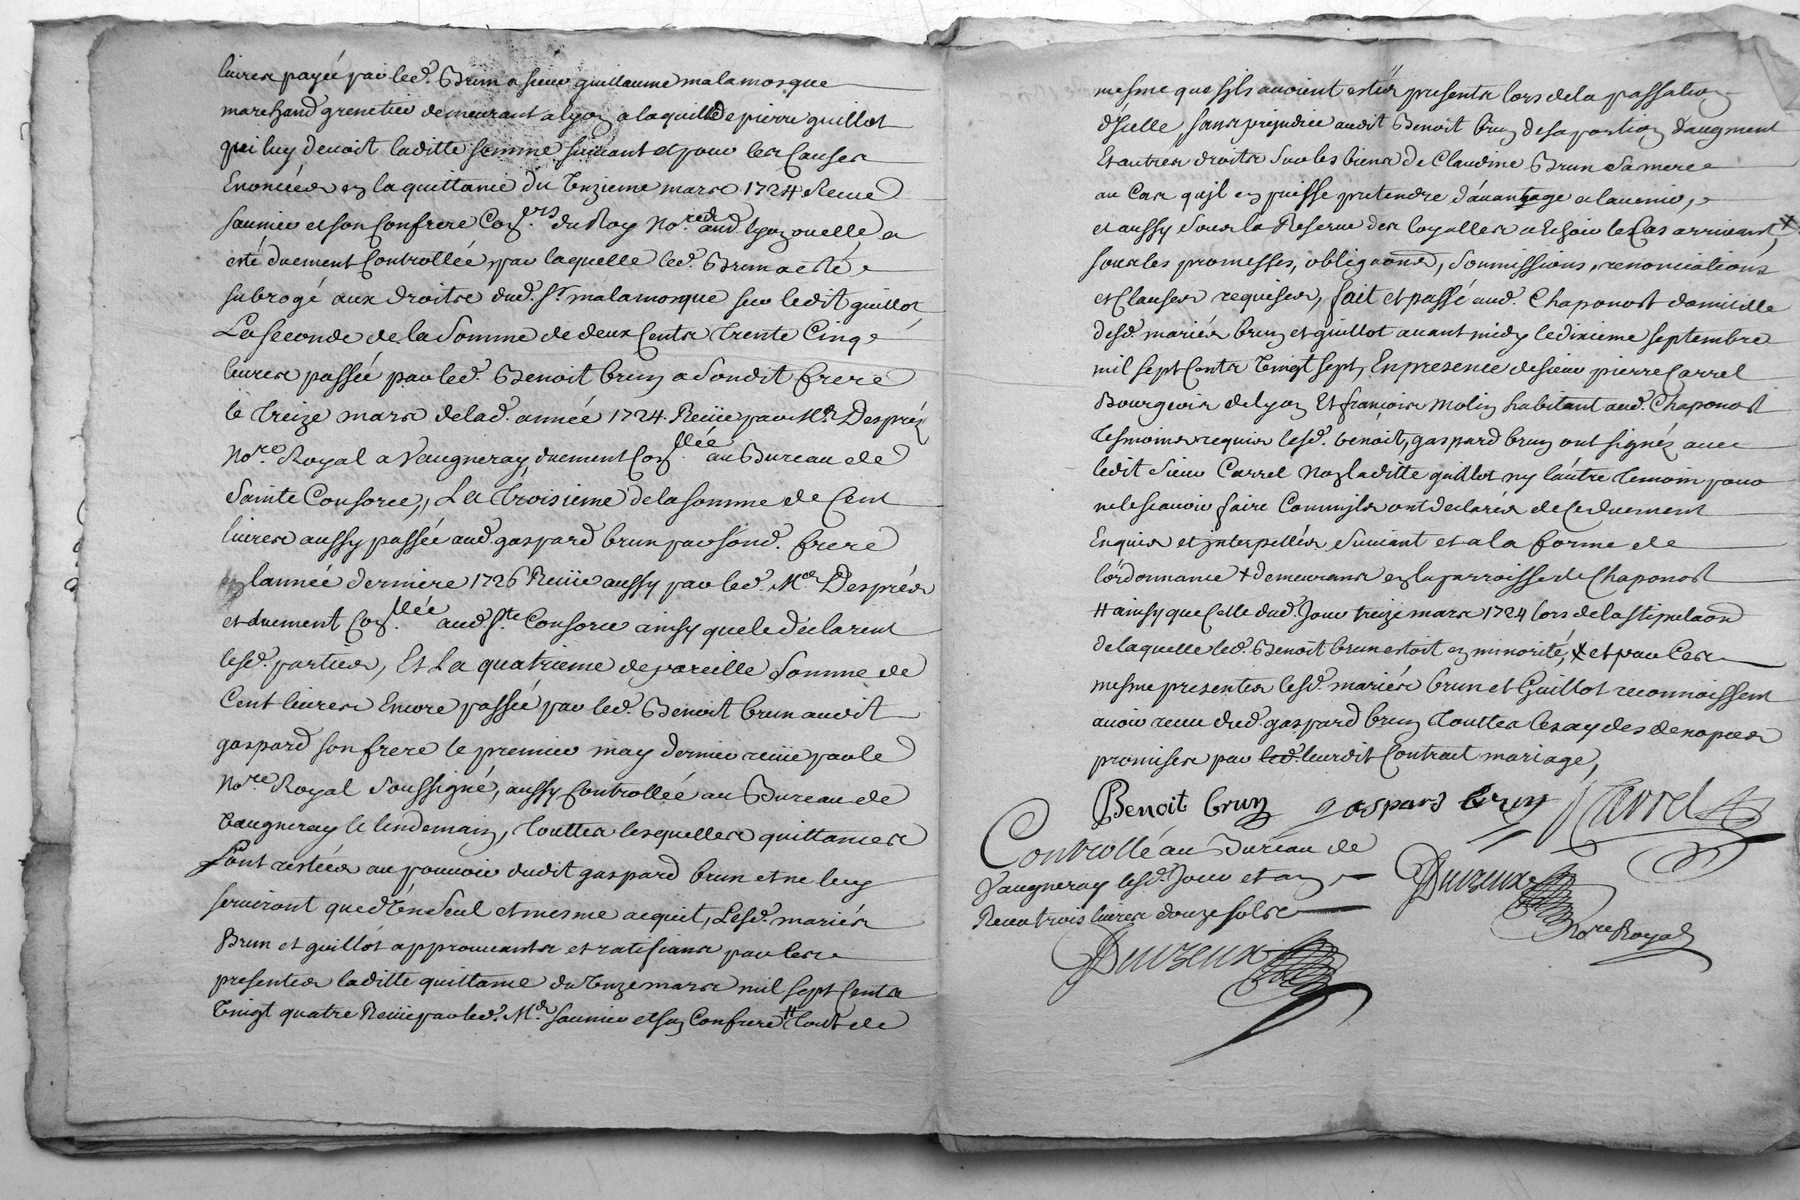 livres payée par led. Brun a sieur guillaume malamosque
marchand grenetier demeurant a lyon a laquitte de pierre guillot
qui luy devoit laditte somme suivant et pour les Causes
Enoncées en la quittance du Unzieme mars 1724 Receue
saunier et son Confrere Con.ers du Roy No.res aud. lyon ouelle a
esté duement Controllée, par laquelle led. Brun a esté
subrogé aux droits dud. Sr. malamosque sur ledit guillot
La seconde de la Somme de deux Cents Trente Cinq
livres passée par led. Benoit brun a Sondit frere
le Treize mars de lad. année 1724. Reçüe par Me. Despréz
No.re Royal a Vaugneray, duement Con.llée au Bureau de
Sainte Consorce,, La Troisieme de la somme de Cent
livres aussy passée aud. gaspard brun par sond. frere
en lannée derniere 1726 Reçüe aussy par led. Me. Desprées
et duement Con.llée aud. Ste. Consorce ainsy que le déclarent
lesd. parties, Et La quatrieme de pareille Somme de
Cent livres Encore passée par led. Benoit brun audit
gaspard son frere le premier may dernier reçüe par le
No.re Royal Soussigné, aussy Controllée au Bureau de
Vaugneray le lendemain, Touttes lesquelles quittances
Sont restées au pouvoir dudit gaspard brun et ne luy
serviront que d'Un Seul et mesme acquit, Lesd. mariés
Brun et guillot approuvants et ratifiants par les
presentes laditte quittance du Unze mars mil sept Cents
Vingt quatre Reçüe par led. Me. saunier et son Confrere # Tout de
mesme que sils avoient estés presents lors de la passation
d'Icelle, sans prejudice audit Benoit brun de sa portion d'augment
Et autres droits Sur les biens de Claudine Brun sa mere
au Cas qu'jl en puisse pretendre d'avantage a lavenir,
et aussy Sous la Reserve des loyalles a Echoir le Cas arrivant, x
sous les promesses, obliga͠ons, Soumissions, renonciations
et Clauses requises, fait et passé aud. Chaponost domicille
desd. mariés brun et guillot avant midy le dixieme septembre
mil sept Cents Vingt sept, En presence de sieur pierre Carrel
Bourgeois de lyon Et françois Molin habitant aud. Chaponost
Tesmoins requis lesd. benoit, gaspard brun ont signés avec
ledit Sieur Carrel Non laditte guillot ny l'autre Temoin pour
ne le scavoir faire Comm'jls ont declarés de Ce duement
Enquis et jnterpellés Suivant et a la forme de
l'ordonnance + demeurants en la parroisse de Chaponost
# ainsy que Celle dud. Jour treize mars 1724 lors de la stipulaon
de laquelle led. Benoit brun estoit en minorité, x et par les
mesme presentes lesd. mariés brun et Guillot reconnoissent
avoir receu dud. gaspard brun Touttes les
promises par led. leurdit Contract mariage,
Benoit brun gaspard brun Carrel
Controllé au Bureau de
Vaugneray lesd. Jour et an
Receu trois livres douze sols
Duvzeux
No.re Royal
Duvzeux